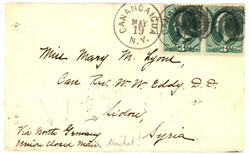 CANANDAIGUA
MAY
19
N.Y.
Miss Mary M. Lyon,
Care Rev. W. W. Eddy, D. D.
Sidon,
Syria
Via North Germany
Union closed mail.